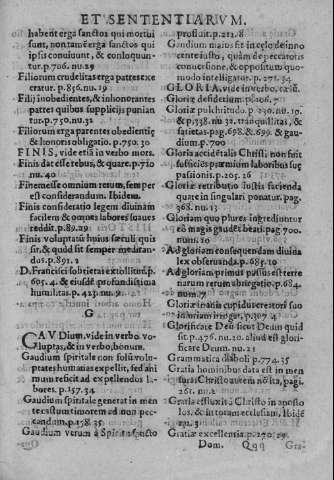 ET SENTENTIARVM.
habent erga sanctos qui mortui
sunt, non tam̃ erga sanctos qui
ipsis conuiuunt, & conloquun-
tur. p. 706. nu. 29
Filiorum crudelitas erga patres exe
cratur. p. 836. nu. 19
Filij inobedientes, & inhonorantes
patres quibus supplicijs punian
tur. p. 750. nu. 32
Filiorum erga parentes obedientię
& honoris obligatio. p. 750. 30
FINIS, vide etiã in verbo mors.
Finis dat esse rebus, & quare. p. 710
nu. 40
Finem esse omnium rerum, semper
est considerandum. Ibidem.
Finis consideratio legem diuinam
facilem & omnes labores suaues
reddit. p. 89. 29
Finis voluptatũ huius sæculi quis
sit, & quòd sit semper meditran-
dos. p. 891. 2
D. Francisci sobrietas extollitur. p.
695. 4. & eiusdẽ profundissima
humilitas. p. 423. nu. 91.
G
GAVDium, vide in verbo vo-
luptas, & in verbo, bonum.
Gaudium spirituale non solũ volu-
ptates humanas expellit, sed ani
mum reficit ad expellendos la-
bores. p. 157. 34
Gaudium spirituale generat in men
te iustum timorem ad non pec-
candum. p. 158. 35
Gaudium verum à Spiritu sancto
prosiluit. p. 212. 8
Gaudium maius est in cęlo de inno
cente iusto, quàm de peccatoris
conuersione, & oppositum quo-
modo intelligat. p. 271. 34
GLORIA, vide in verbo, cælũ.
Glorię desiderium. p. 206. 7
Gloriæ pulchritudo p. 290. nu. 19.
& p. 138. nu. 32. tranquillitas, &
satietas. pag. 698. & 699. & gau-
dium. p. 700
Gloria accidẽtalis Christi, non fuit
sufficiẽs pręmium laboribus suę
passionis. p. 205. 26
Gloriæ retributio iustis facienda
quare in singulari ponatur. pag.
368. nu. 13
Gloriam quo plures ingrediuntur
eò magis gaudẽt beati. pag. 700.
num. 20
Ad gloriam consequendam diuina
lex obseruanda. p. 685. 10
Ad gloriam primus passus est terre
narum rerum abnegatio. p. 684.
num. 7
Gloriæ inanis cupidus creator suo
iniuriam irrogat. p. 307. 4
Glorificare Deũ sicut Deum quid
sit. p. 476. nu. 20. aliud est glorifi-
care Deum. nu. 21
Grammatica diaboli p. 774. 35
Gratia hominibus data est in men
suras Christo autem nõ ita, pagi.
261. nu. 2
Gratia est fluxit à Christo in aposto
los, & in totam ecclesiam, Ibidẽ
Gratiæ excellentia. p. 270. 29
Dom. Qqq Gra-